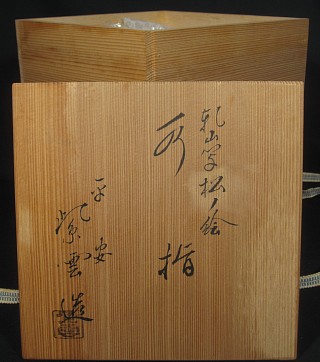 乾山写松ノ絵
水指
平安
紫雲造